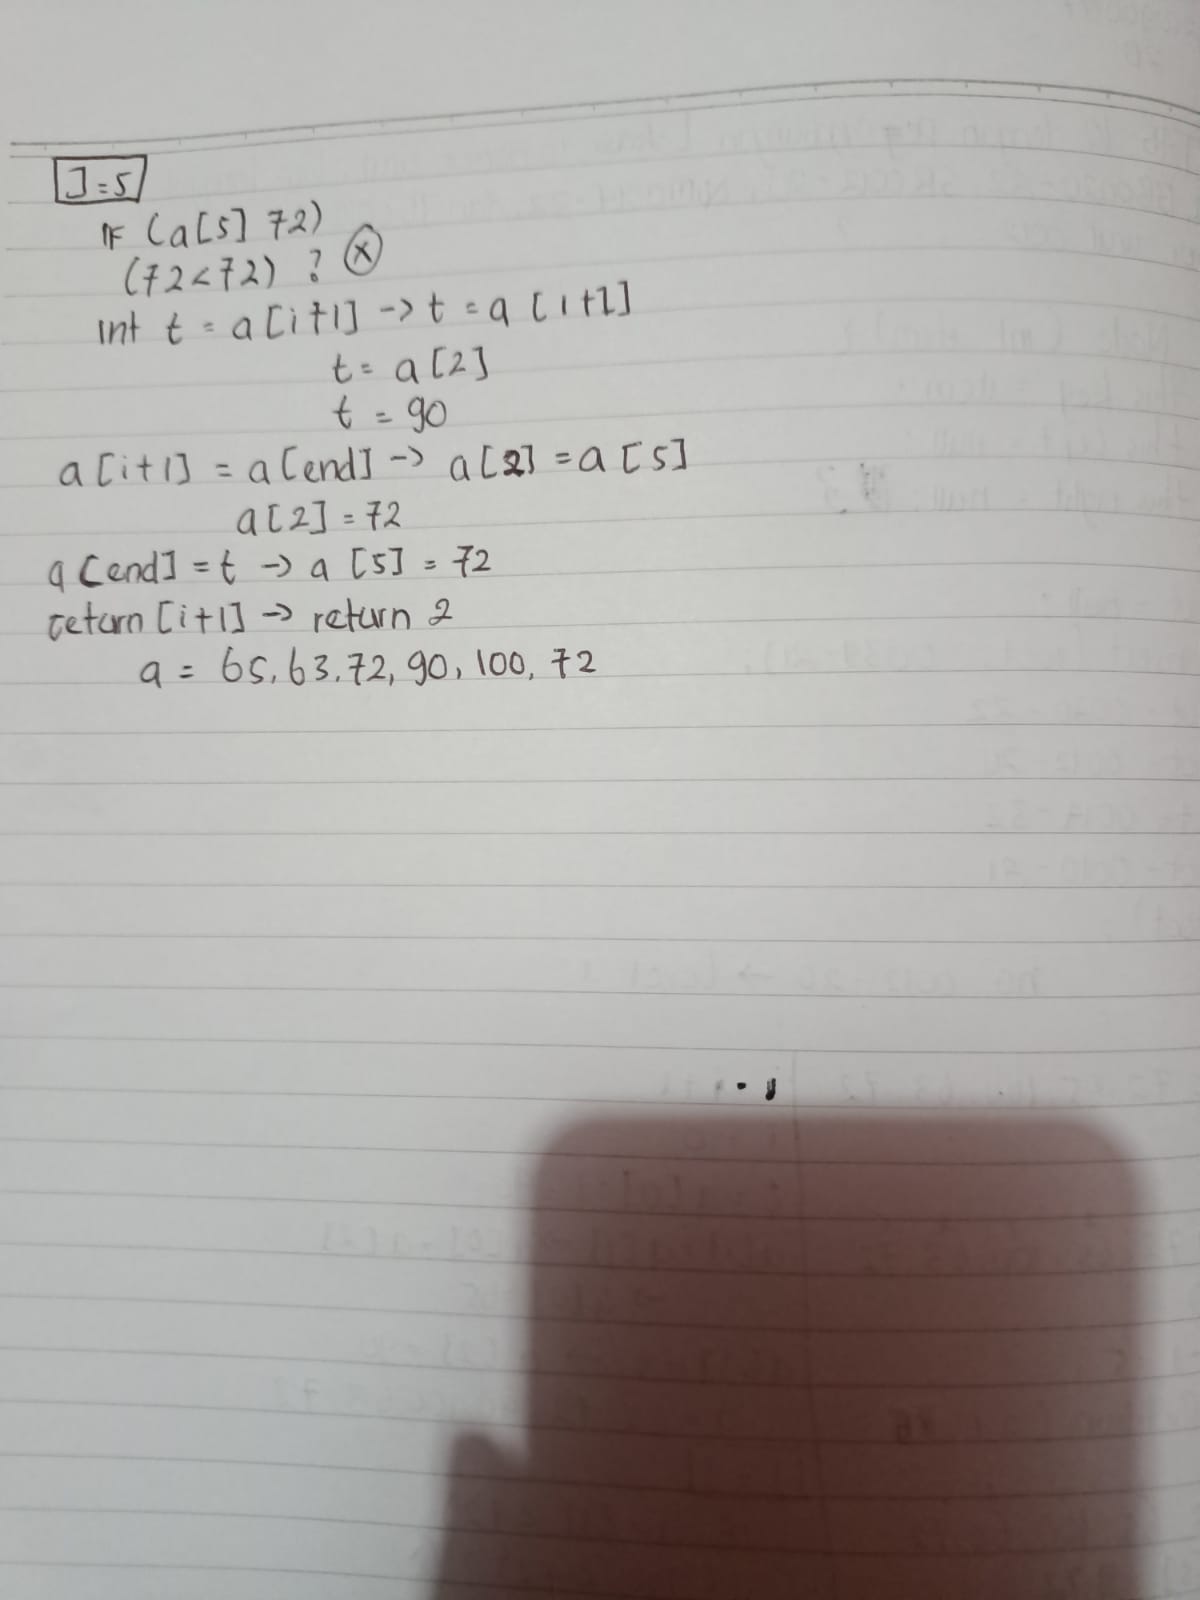 J=5
IF (a[5] 72)
(72<72) ? X
int t = a[i+1] -> t = a [1+1]
t = a [2]
t = 90
a [i+1] = a [end] -> a[2] = a [5]
a[2] = 72
a [end] = t -> a [5] = 72
return [i+1] -> return 2
a = 65, 63, 72, 90, 100, 72